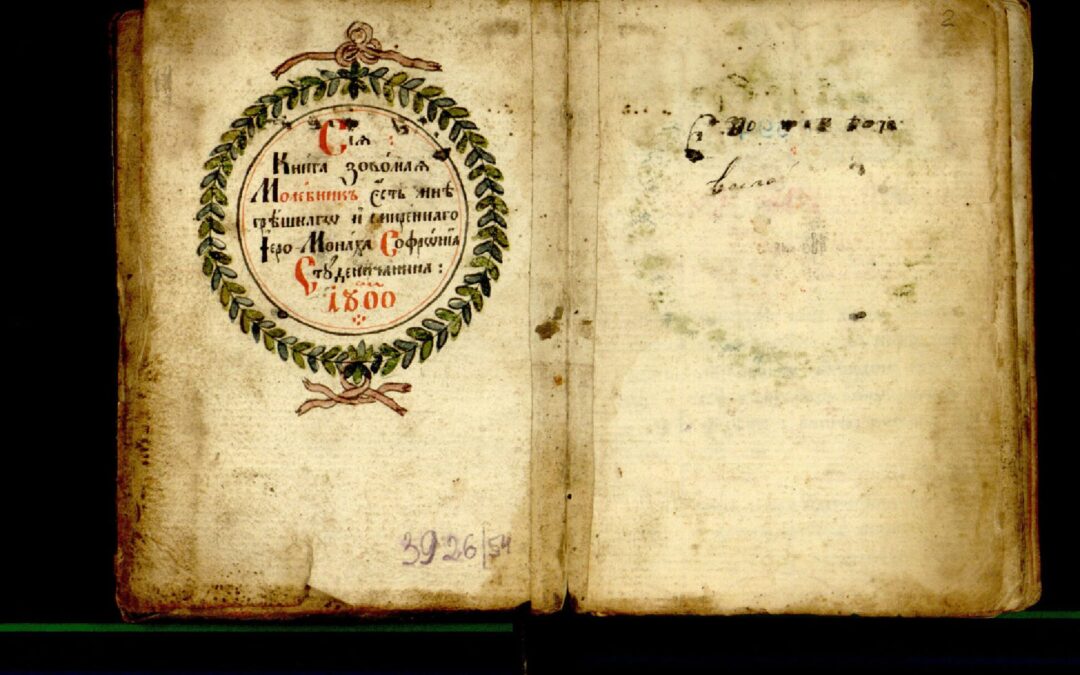 Сїѧ
Книга зовомаѧ
Молебникъ Єсть мнѣ
грѣшнагѡ и смиреннаго
Їеро-Монаха Софрѡнїѧ
Стꙋденичанина :
1800
3926/54
2